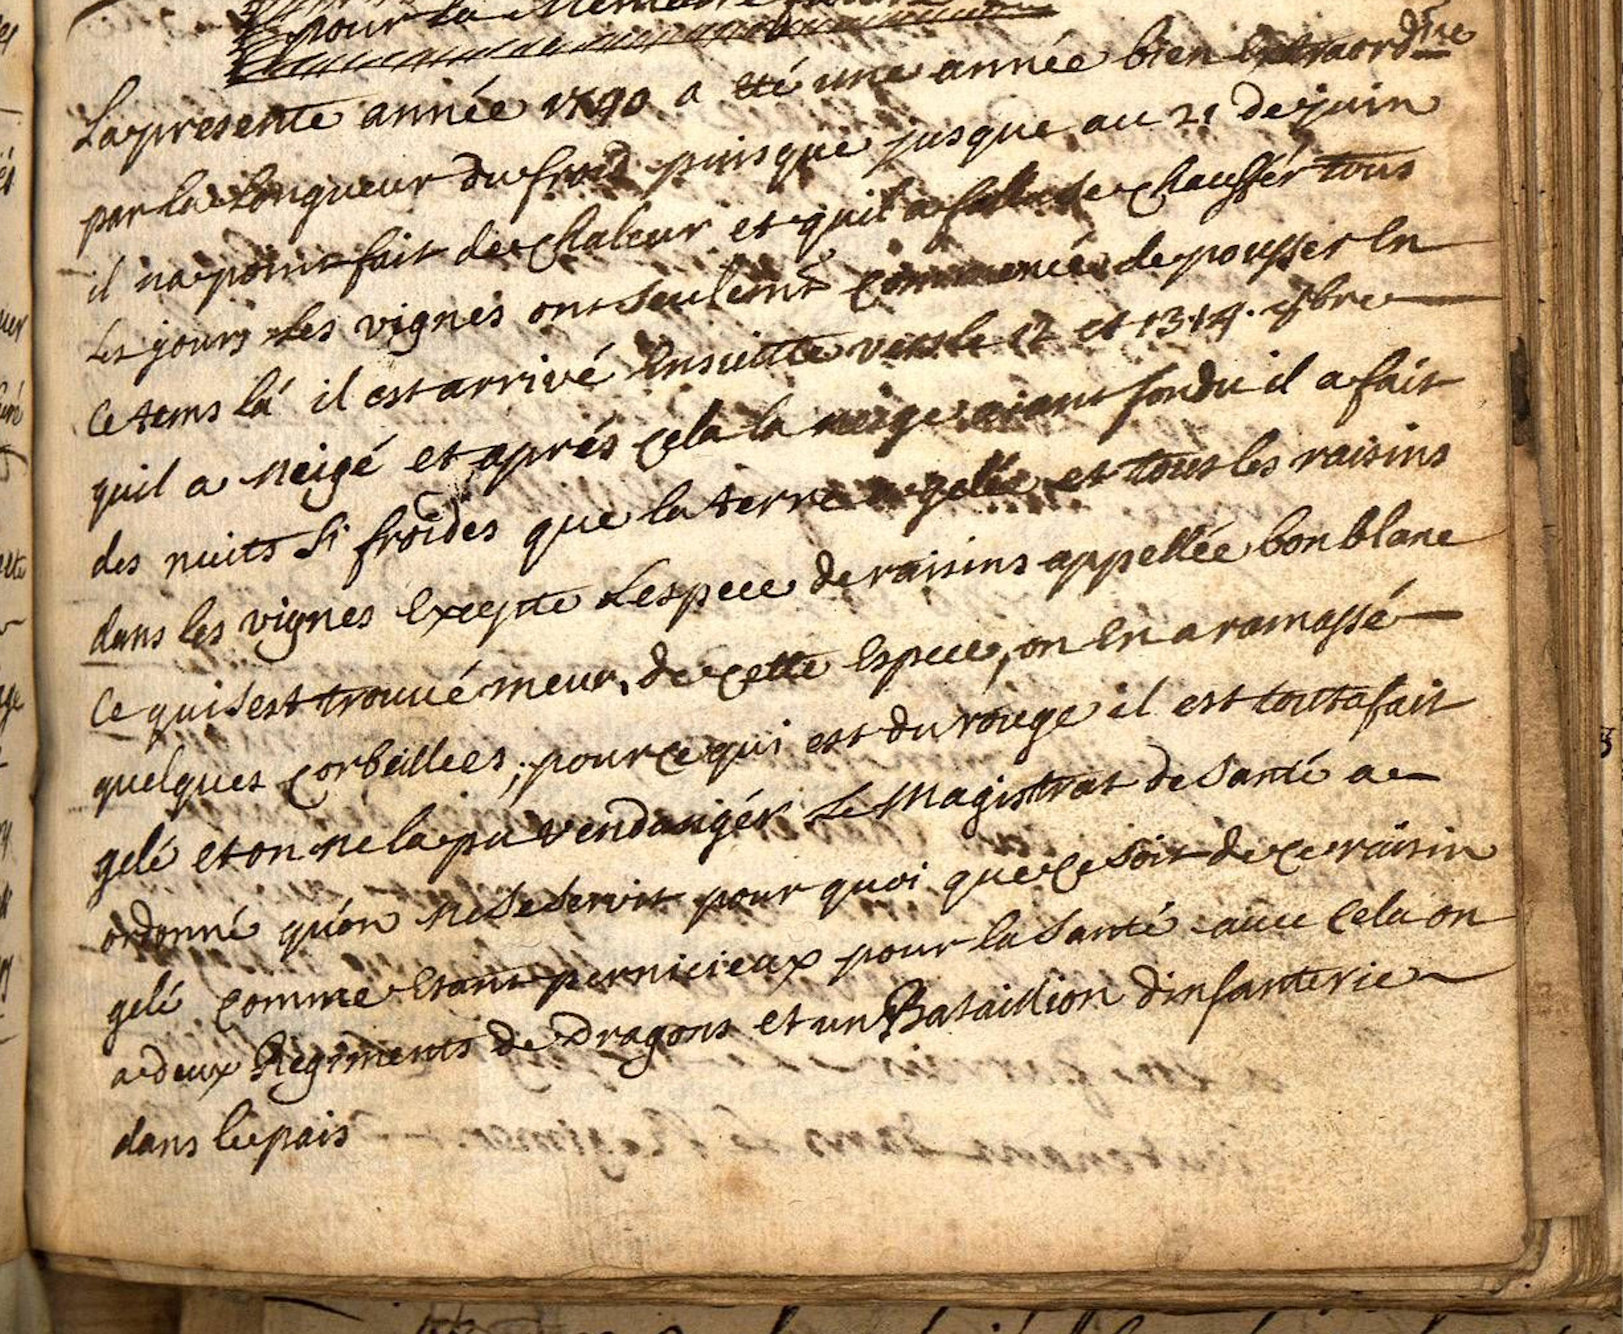 pour la Memoire
La presente année 1740 a eté une année bien extraord.re
par la longueur du froid puisque jusque au 21 de juin
il na point fait de chaleur et quil a fallu se chauffér tous
les jours les vignes ont seulemt commencé de pousser En
ce tems là il est arrivé Ensuitte vers le 12 et 13. 14. 8bre
quil a neigé et aprés cela la neige aiant fondu il a fait
des nuits si froides que la terre a gelée et tous les raisins
dans les vignes Excepte Lespece de raisins appellée bon blanc
ce qui sest trouué meur, de cette Espece, on En a ramassé
quelques corbeillees; pour ce qui est du rouge il est toutafait
gelé et on ne la pu vendangér Le Magistrat de Santé a
ordonné qu'on ne se servit pour quoi que ce soit de ce raisin
gelé comme Etant pernicieux pour la santé auec cela on
a deux Regiments de Dragons et un Bataillion dinfanterie
dans le pais